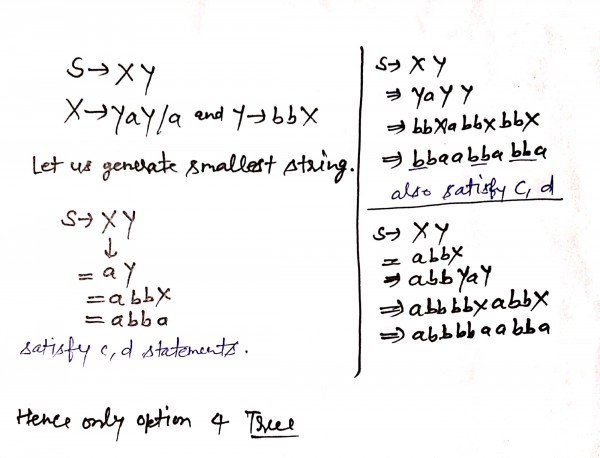 S→XY
X→YaY/a and Y→bbX
Let us generate smallest string.
S→XY
↓
= aY
= abbX
= abba
satisfy c, d statements.
S→ XY
⇒ YaYY
⇒ bbXabbXbbX
⇒ bbaabbabba
also satisfy C, d
S→ XY
= abbX
⇒ abbYaY
⇒ abbbbXabbX
⇒ abbbbaabba
Hence only option 4 True